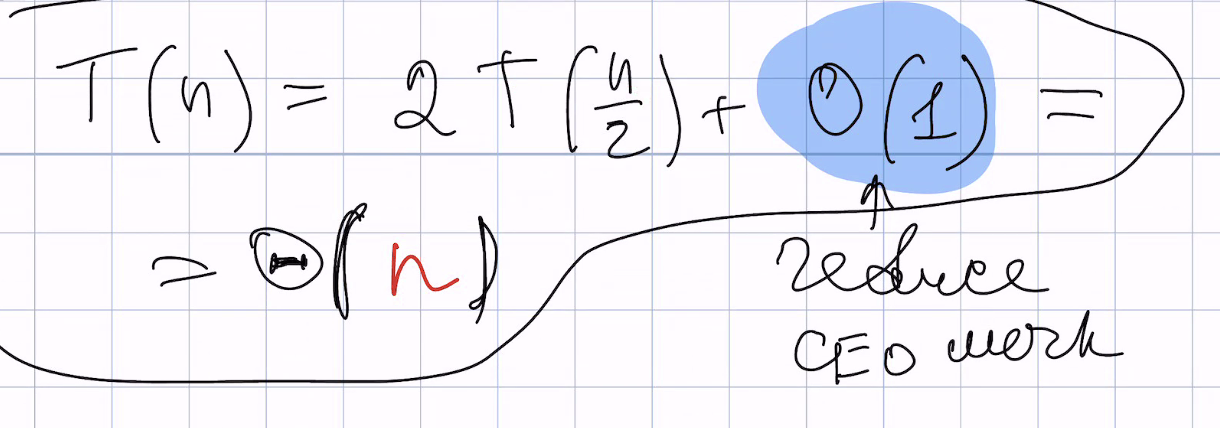 T(n) = 2T(n/2) + O(1) =
= Θ(n)
reduce
CEO work